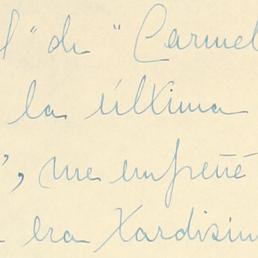 " de "Carmel
la última
", me empeñé
era Xardisin